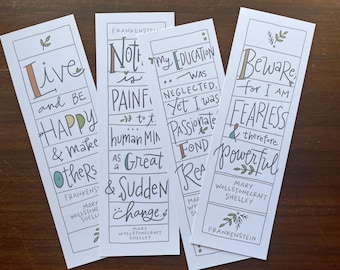 Live
and BE
HAPPY
& make
Others
FRANKENSTEIN
MARY
WOLLSTONECRAFT
SHELLEY
FRANKENSTEIN
is
PAINF
to
human
as a Great
& SUDDEN
change.
MARY WOLLSTONECRAFT
SHELLEY
my EDUCATION
WAS
NEGLECTED,
yet I was
Passionate
FOND
Beware
for I am
FEARLESS
& therefore
powerful
MARY
WOLLSTONECRAFT
SHELLEY
FRANKENSTEIN